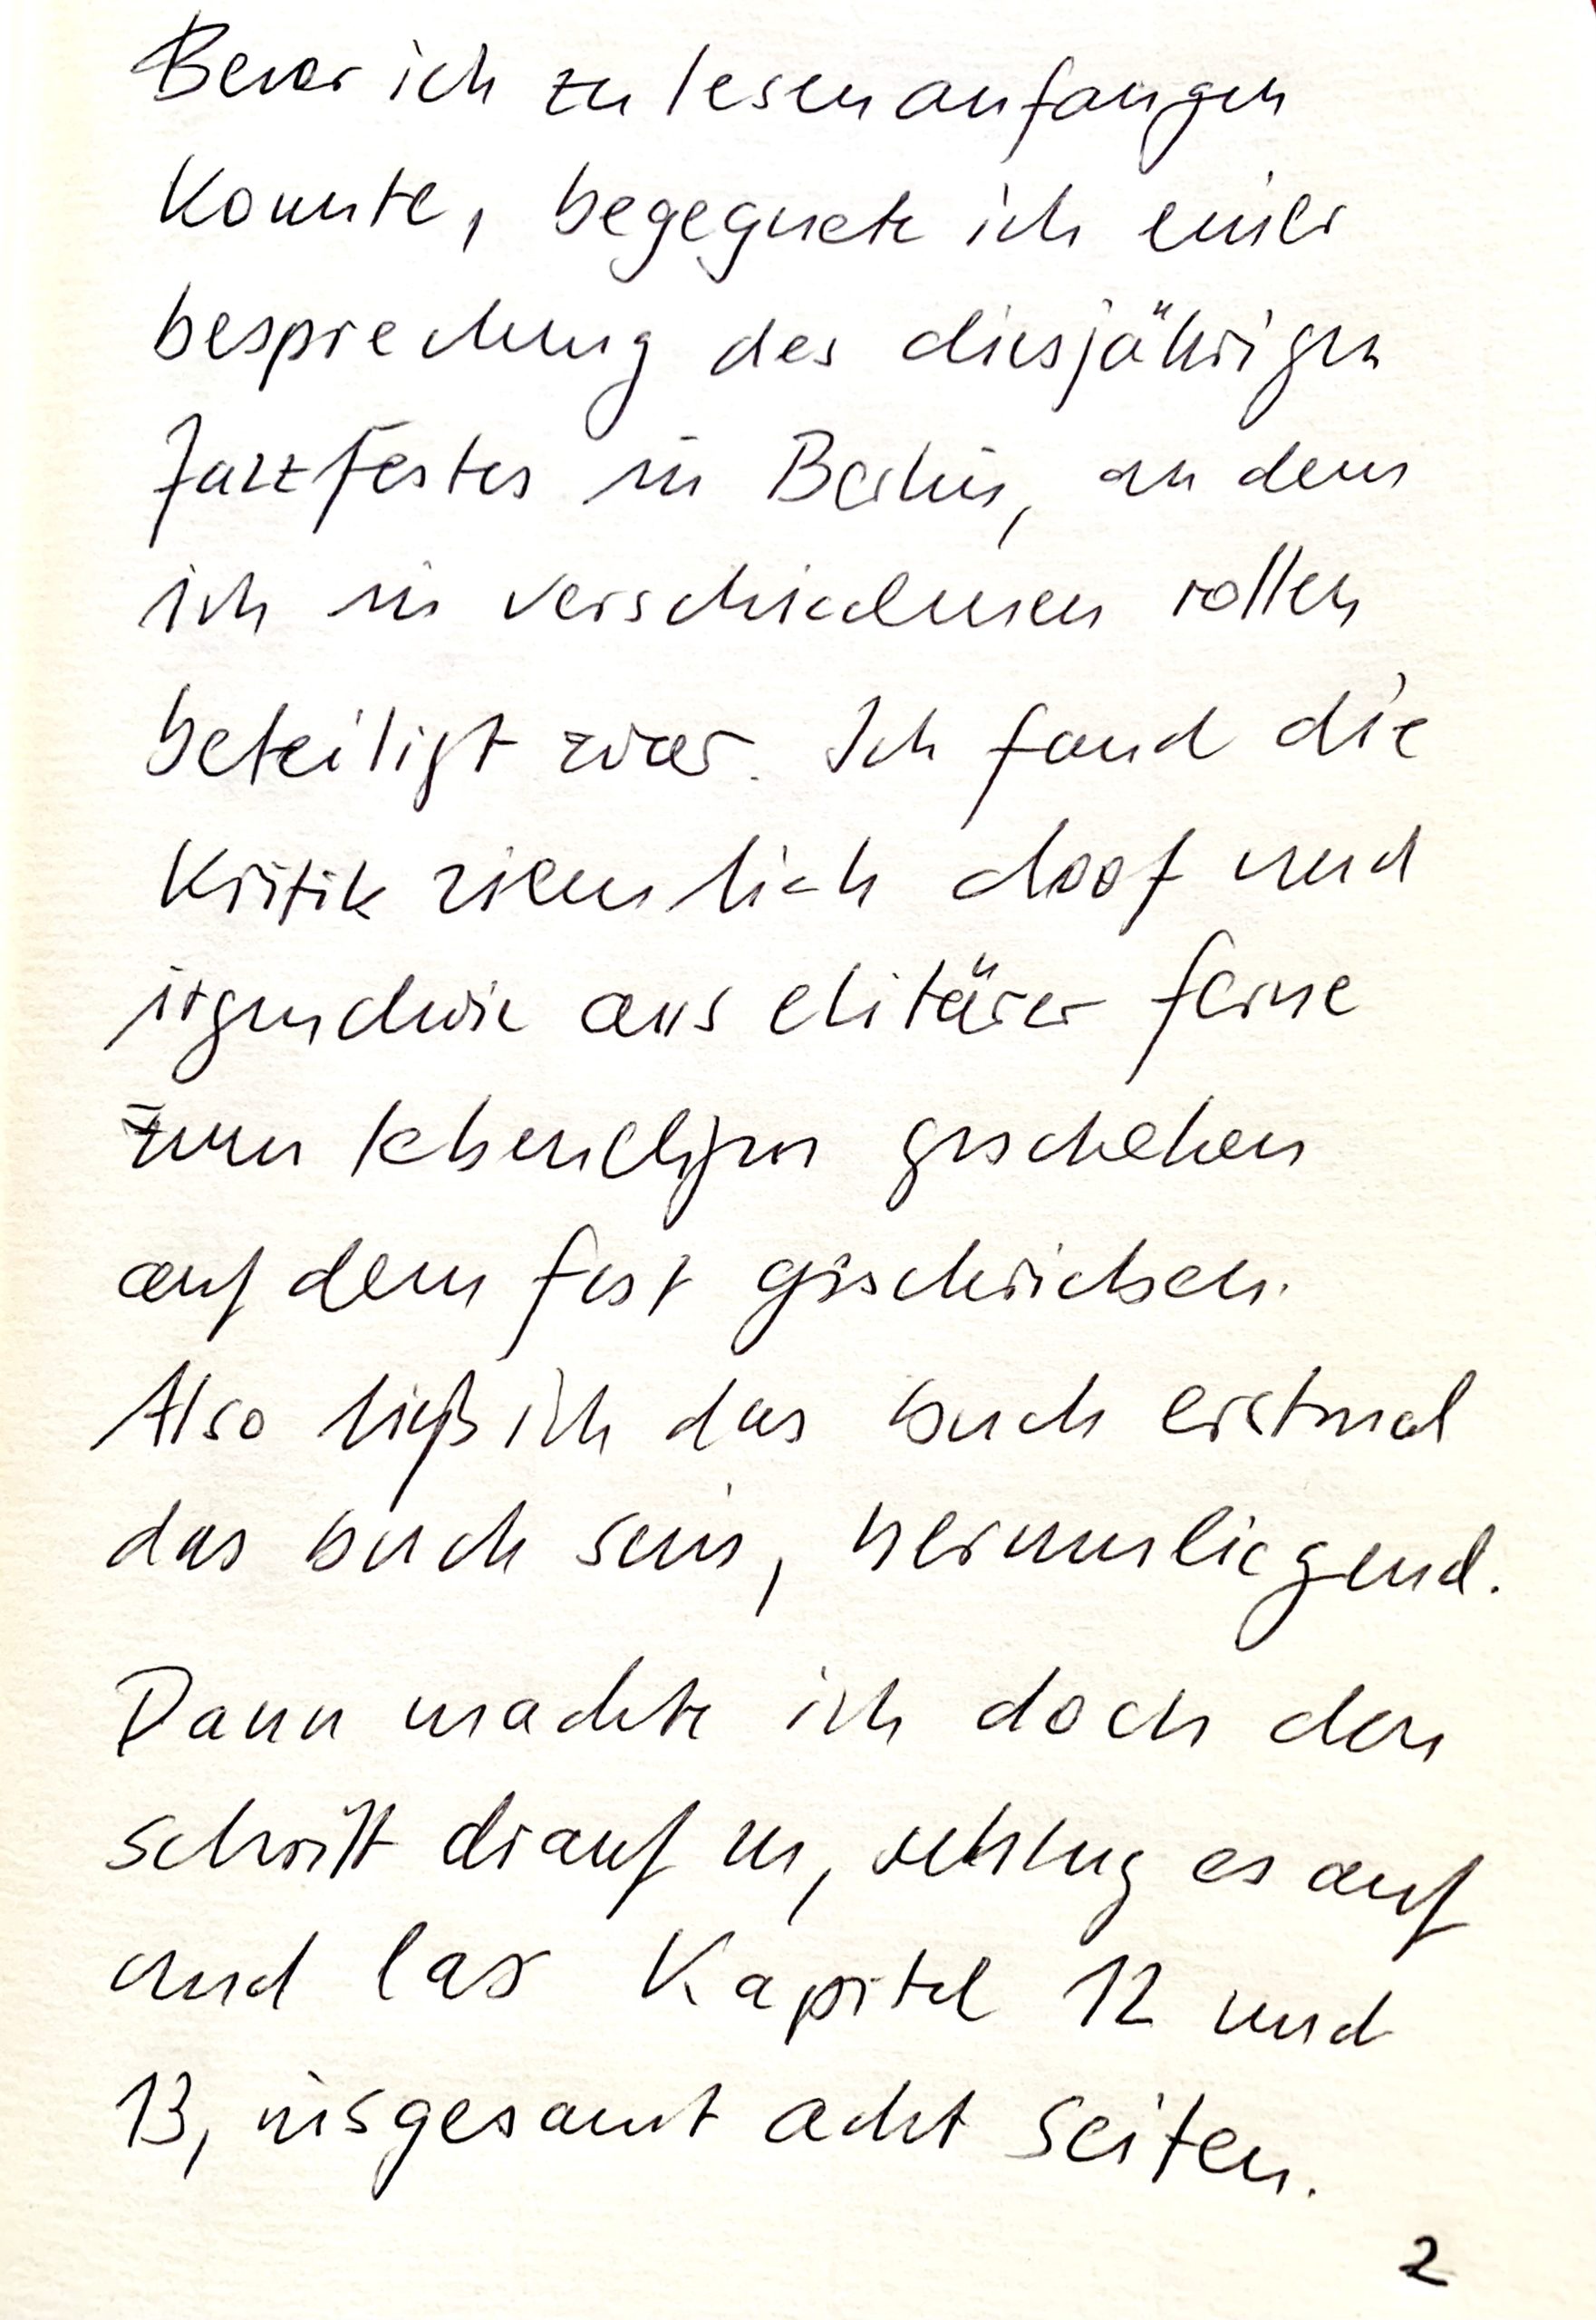 Bevor ich zu lesen anfangen
konnte, begegnete ich einer
besprechung des diesjährigen
Jazzfestes in Berlin, an dem
ich in verschiedenen rollen
beteiligt war. Ich fand die
Kritik ziemlich doof und
irgendwie aus elitärer ferne
zum lebendigen geschehen
auf dem fest geschrieben.
Also ließ ich das buch erstmal
das buch sein, herumliegend.
Dann machte ich doch den
schritt drauf zu, schlug es auf
und las Kapitel 12 und
13, insgesamt acht seiten.
2